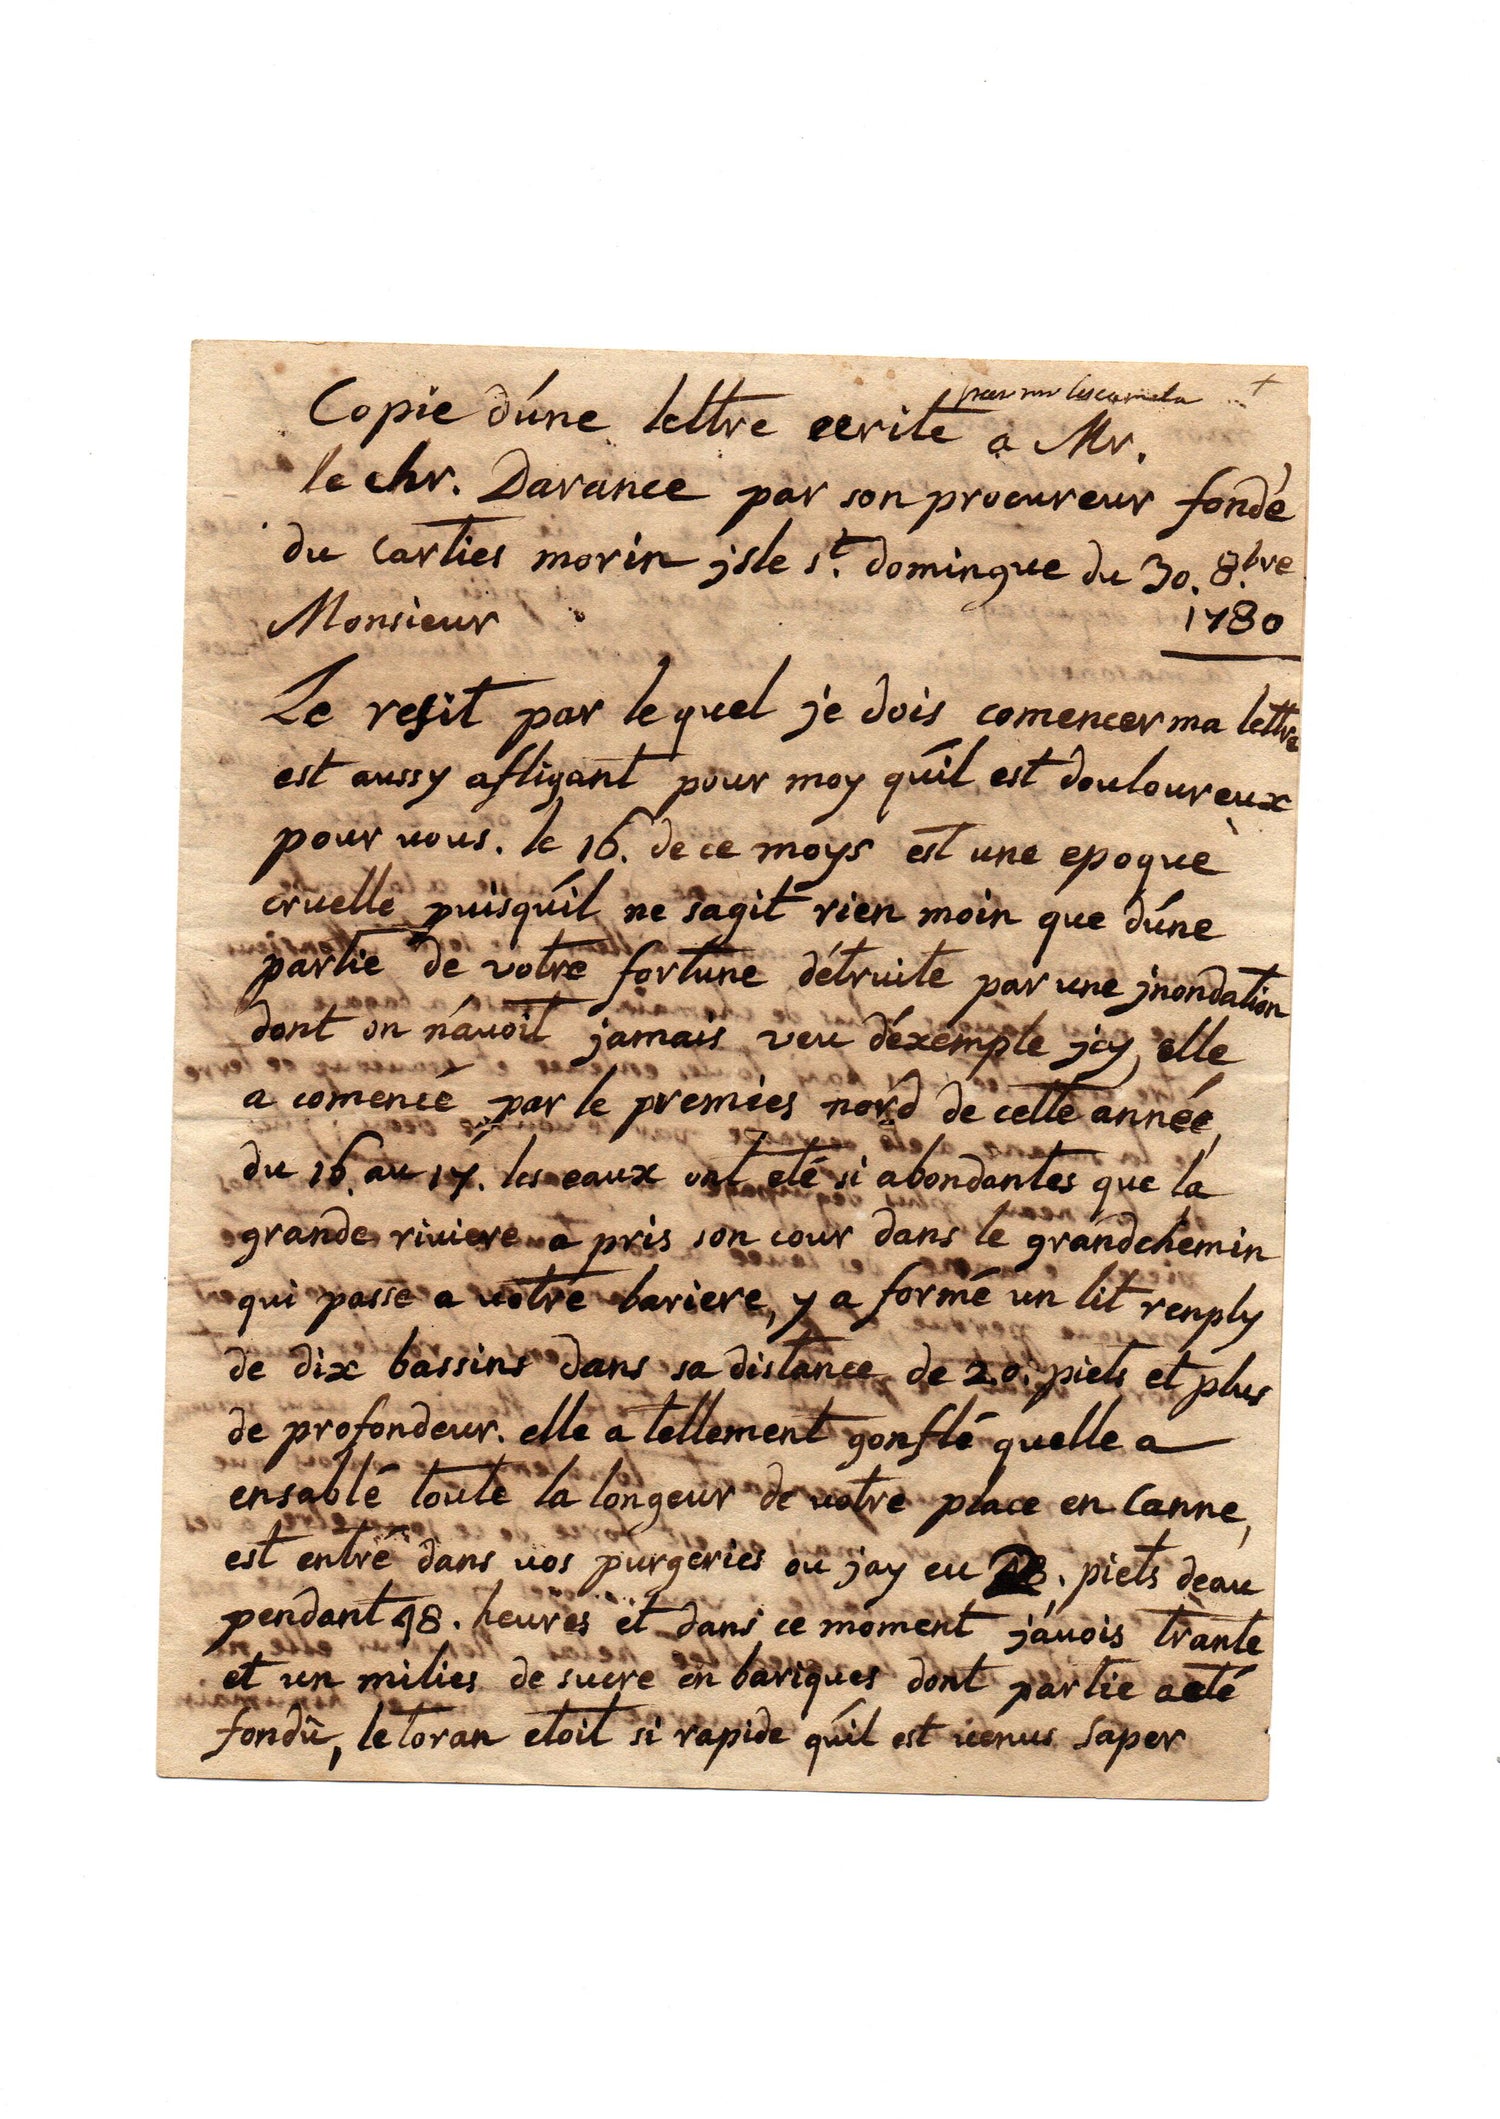 Copie d'úne lettre ecrite a Mr.
le chr. Darance par son procureur fondé
du Carties morin jsle st. domingue du 30. 8.bre
1780
Monsieur
Le resit par le quel je dois comencer ma lettre
est aussy afligant pour moy qúil est douloureux
pour vous. le 16. de ce moys est une epoque
cruelle puisqúil ne sagit rien moin que dúne
partie de votre fortune détruite par une jnondation
dont on návoit jamais veu déxemple jcy, elle
a comencé par le premies nord de cette année,
du 16. au 17. les eaux ont eté si abondantes que la
grande riviere a pris son cour dans le grandchemin
qui passe a votre bariere, y a formé un lit renply
de dix bassins dans sa distance de 20. piets et plus
de profondeur. elle a tellement gonflé quelle a
ensablé toute la longeur de votre place en Canne,
est entré dans vos purgeries ou jay eu piets deau
pendant 48. heures et dans ce moment jávois trante
et un milies de sucre en bariques dont partie a eté
fondû, le toran etoit si rapide qúil est venus Saper